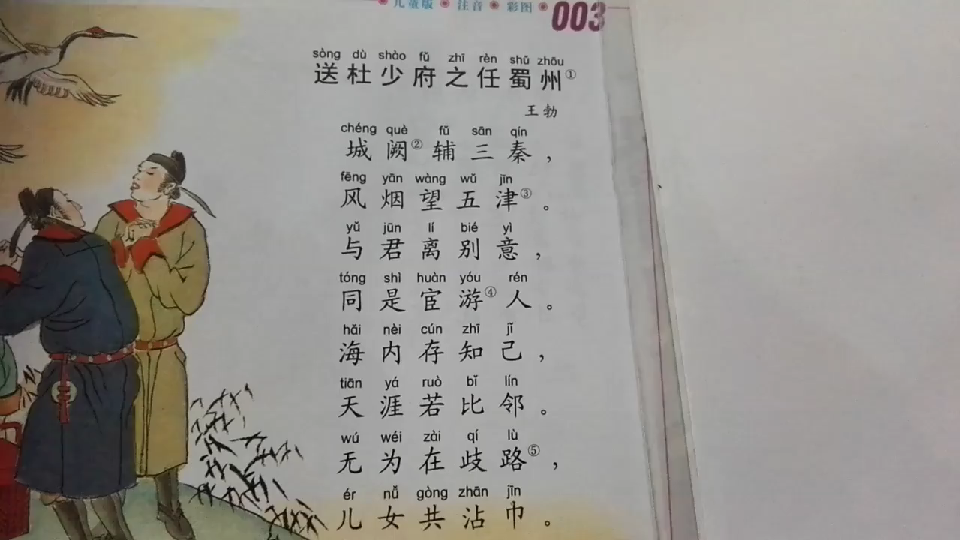 儿童版 注音 彩图 003
sòng dù shào fǔ zhī rèn shǔ zhōu
送杜少府之任蜀州①
王勃
chéng què fǔ sān qín
城阙②辅三秦，
fēng yān wàng wǔ jīn
风烟望五津③。
yǔ jūn lí bié yì
与君离别意，
tóng shì huàn yóu rén
同是宦游④人。
hǎi nèi cún zhī jǐ
海内存知己，
tiān yá ruò bǐ lín
天涯若比邻。
wú wéi zài qí lù
无为在歧路⑤，
ér nǚ gòng zhān jīn
儿女共沾巾。